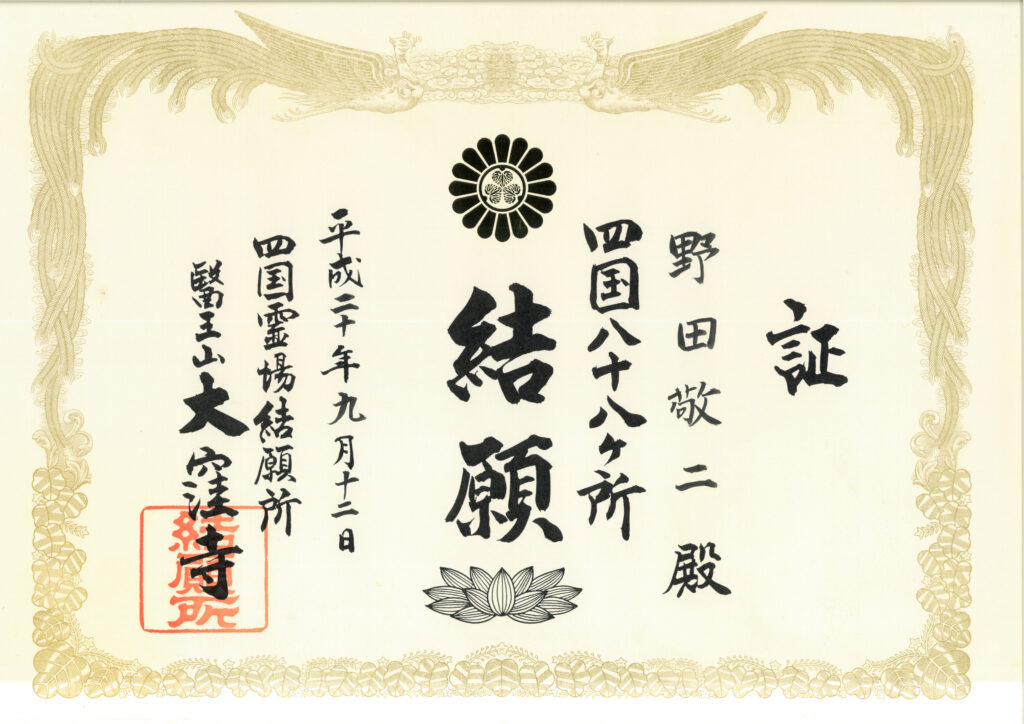 証
野田敬二殿
四国八十八ヶ所
結願
平成二十年九月十二日
四国霊場結願所
醫王山大窪寺
結願所